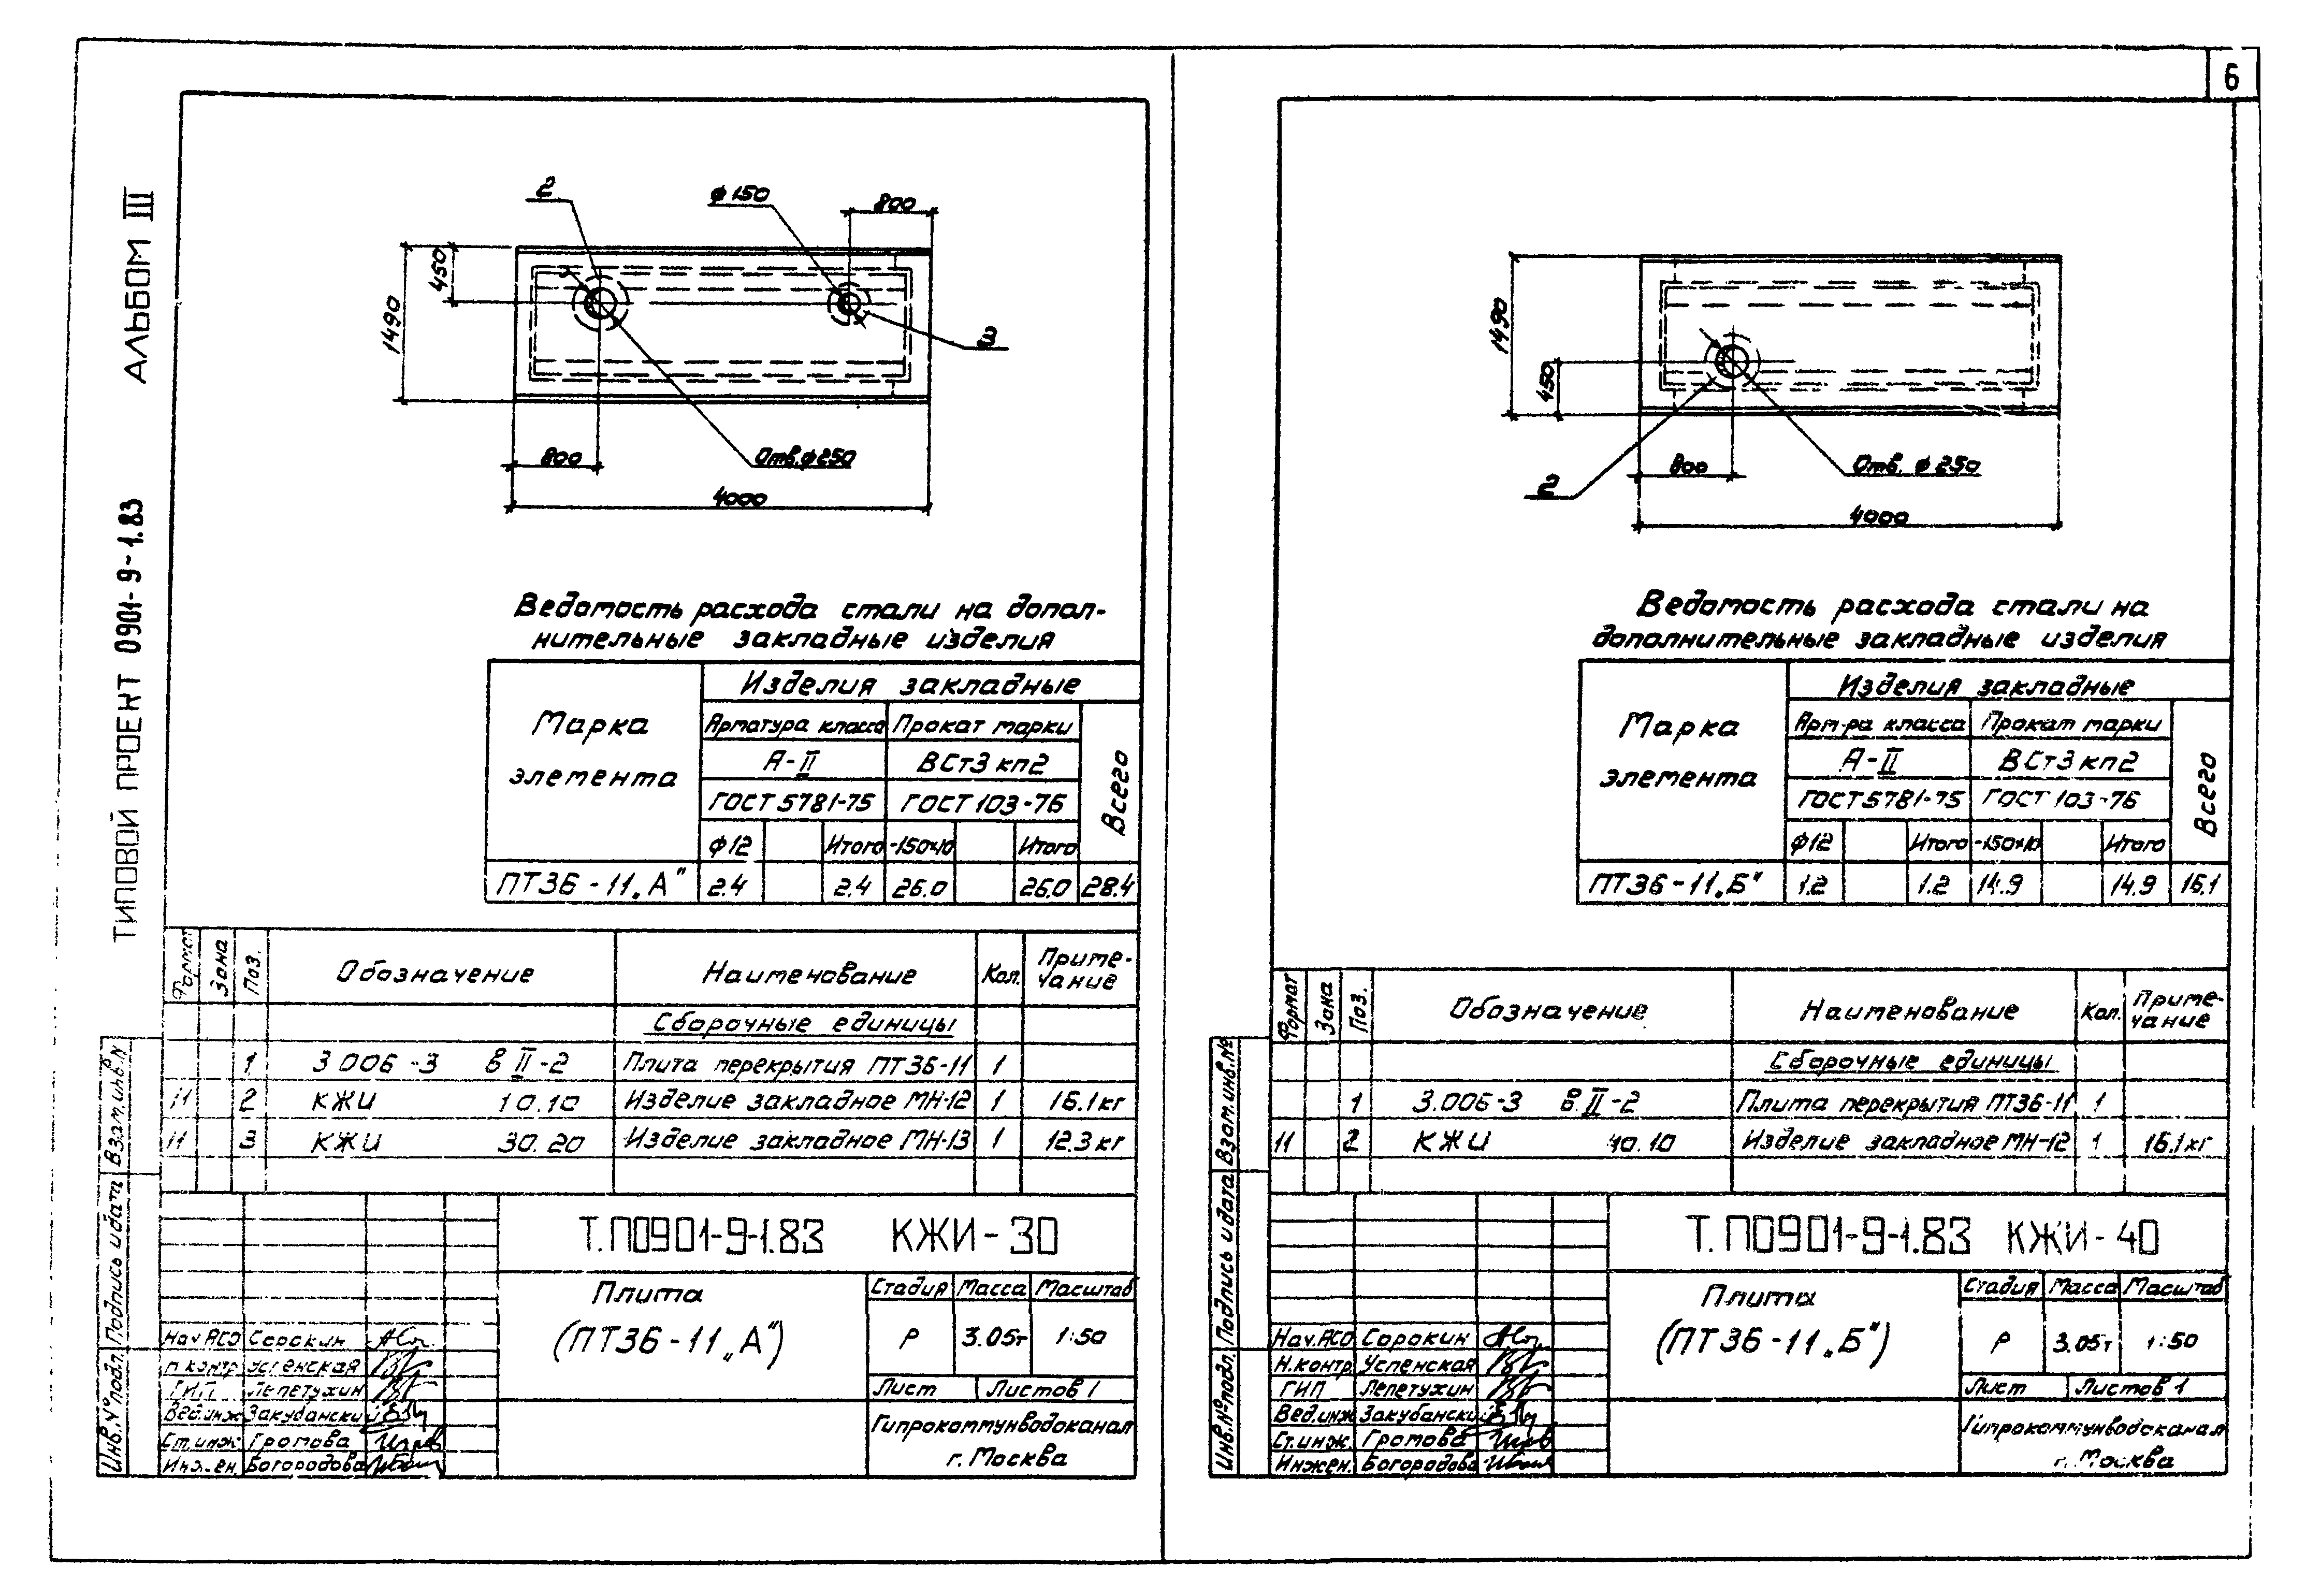 6
АЛЬБОМ III
ТИПОВОЙ ПРОЕКТ 0901-9-1.83
2
ф150
800
450
1490
3
800
Отв.ф250
4000
Ведомость расхода стали на допол-
нительные закладные изделия
Марка элемента
Изделия закладные
Арматура класса Прокат марки
А-II ВСт3кп2
ГОСТ 5781-75 ГОСТ 103-76
Всего
ф12 Итого -150×10 Итого
ПТ36-11„А" 2.4 2.4 26.0 26.0 28.4
Формат Зона Поз. Обозначение Наименование Кол. Приме-
чание
Сборочные единицы
1 3.006-3 в II-2 Плита перекрытия ПТ36-11 1
11 2 КЖИ 10.10 Изделие закладное МН-12 1 16.1кг
11 3 КЖИ 30.20 Изделие закладное МН-13 1 12.3кг
Т.П0901-9-1.83 КЖИ-30
Плита
(ПТ36-11„А")
Стадия Масса Масштаб
Р 3.05т 1:50
Лист Листов 1
Гипрокоммунводоканал
г. Москва
Нач.АСО Сорокин
Н.контр Успенская
ГИП Лепетухин
Вед.инж Закубанский
Ст.инж Громова
Инжен. Богородова
Инв.№подл. Подпись и дата Взам.инв.№
1490
450
2
800
Отв. ф250
4000
Ведомость расхода стали на
дополнительные закладные изделия
Марка элемента
Изделия закладные
Арм-ра класса Прокат марки
А-II ВСт3кп2
ГОСТ 5781-75 ГОСТ 103-76
Всего
ф12 Итого -150×10 Итого
ПТ36-11„Б" 1.2 1.2 14.9 14.9 16.1
Формат Зона Поз. Обозначение Наименование Кол. Приме-
чание
Сборочные единицы
1 3.006-3 в.II-2 Плита перекрытия ПТ36-11 1
11 2 КЖИ 10.10 Изделие закладное МН-12 1 16.1кг
Т.П0901-9-1.83 КЖИ-40
Плита
(ПТ36-11„Б")
Стадия Масса Масштаб
Р 3.05т 1:50
Лист Листов 1
Гипрокоммунводоканал
г. Москва
Нач.АСО Сорокин
Н.контр Успенская
ГИП Лепетухин
Вед.инж Закубанский
Ст.инж Громова
Инжен. Богородова
Инв.№подл. Подпись и дата Взам.инв.№